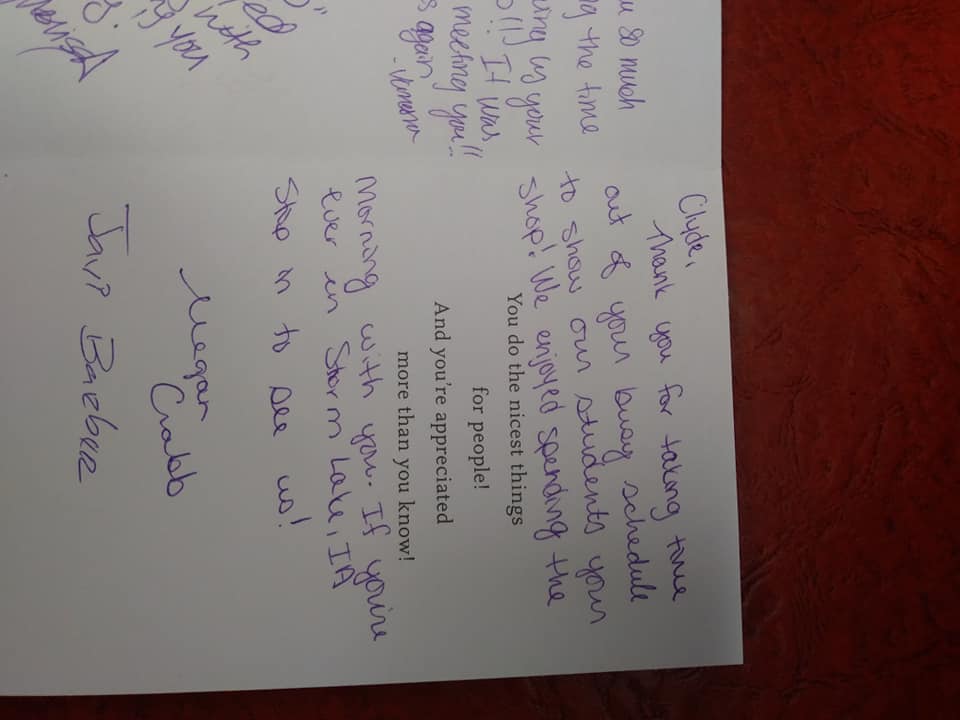 u so much
the time
us your
It was
meeting you!!
again
-Vanessa
with
you
Clyde,
Thank you for taking time
out of your busy schedule
to show our students your
shop! We enjoyed spending the
You do the nicest things
for people!
And you're appreciated
more than you know!
Morning with you. If you're
ever in Storm Lake, IA
stop in to see us!
Megan
Crabb